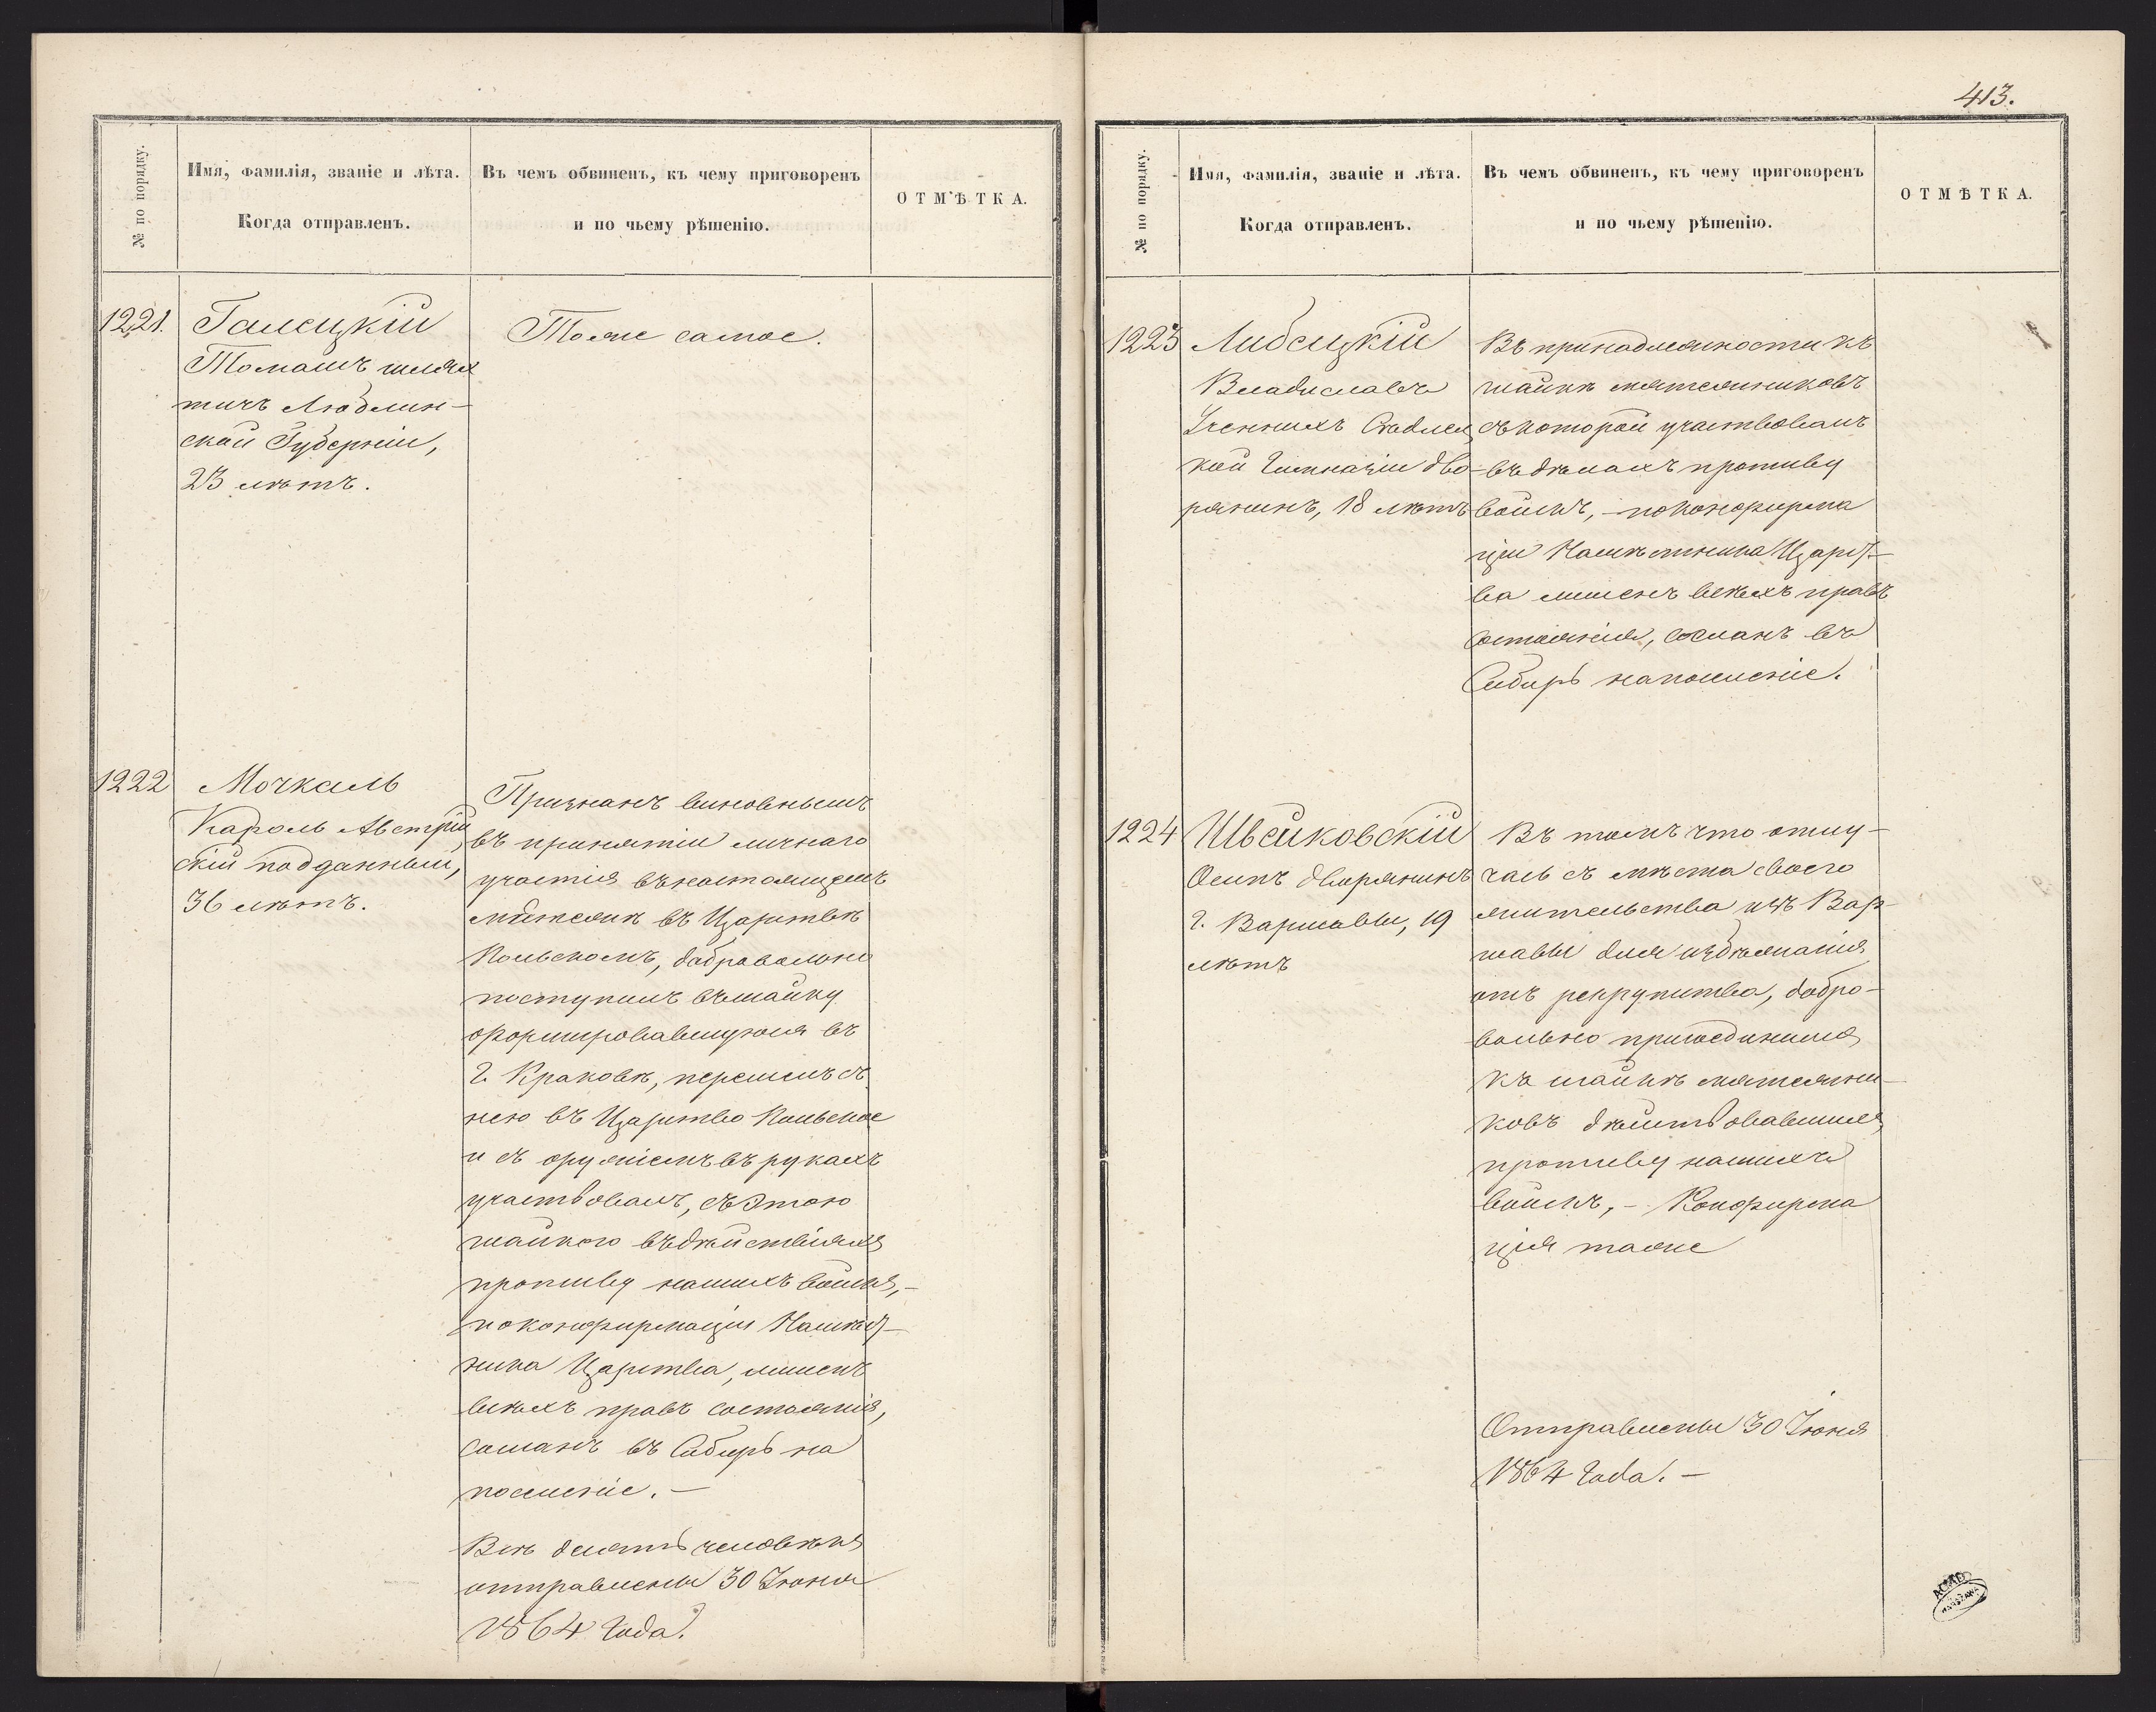 № по порядку.
Имя, фамилія, званіе и лѣта.
Когда отправленъ.
Въ чемъ обвиненъ, къ чему приговоренъ
и по чьему рѣшенію.
ОТМѢТКА.
1221.
Галецкій
Томашъ шлях
тичъ Люблин-
ской Губерніи,
23 лѣтъ.
Тоже самое.
1222
Мочкаль
Кароль Австрій
скій подданный,
36 лѣтъ.
Признанъ виновнымъ
въ принятіи личнаго
участія въ настоящемъ
мятежѣ въ Царствѣ
Польскомъ, добровольно
поступилъ въ шайку
сформировавшуюся въ
г. Краковѣ, перешелъ съ
нею въ Царство Польское
и съ оружіемъ въ рукахъ
участвовалъ, съ этою
шайкою въ дѣйствіяхъ
противу нашихъ войскъ,-
по конфирмаціи Намѣст-
ника Царства, лишенъ
всѣхъ правъ состоянія,
сосланъ въ Сибирь на
поселеніе. -
Всѣ человѣкъ
отправлены 30 Іюня
1864 года.
413.
№ по порядку.
Имя, фамилія, званіе и лѣта.
Когда отправленъ.
Въ чемъ обвиненъ, къ чему приговоренъ
и по чьему рѣшенію.
ОТМѢТКА.
1223
Либецкій
Владиславъ
кой Гимназіи дво-
рянинъ, 18 лѣтъ
Въ принадлежности къ
шайкѣ мятежниковъ
съ которой участвовалъ
въ дѣлахъ противу
войскъ, - по конфирма
ціи Намѣстника Царст-
ва лишенъ всѣхъ правъ
состоянія, сосланъ въ
Сибирь на поселеніе.
1224
Швейковскій
Осипъ дворянинъ
г. Варшавы, 19
лѣтъ
Въ томъ что отлу-
часъ съ мѣста своего
жительства изъ Вар-
шавы для избѣжанія
отъ рекрутства, добро-
вольно присоединился
къ шайкѣ мятежни-
ковъ дѣйствовавшихъ
противу нашихъ
войскъ, - Конфирма
ція таже
Отправлены 30 Іюня
1864 года. -
WARSZAWA